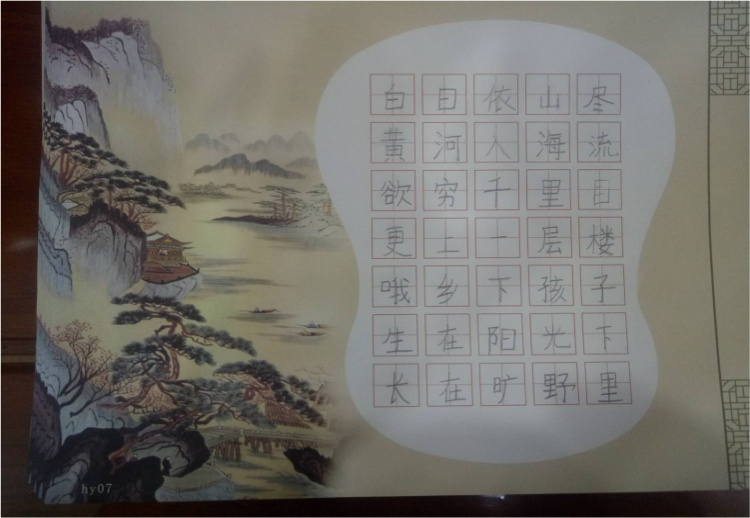 白日依山尽
黄河入海流
欲穷千里目
更上一层楼
哦乡下孩子
生在阳光下
长在旷野里
hy07